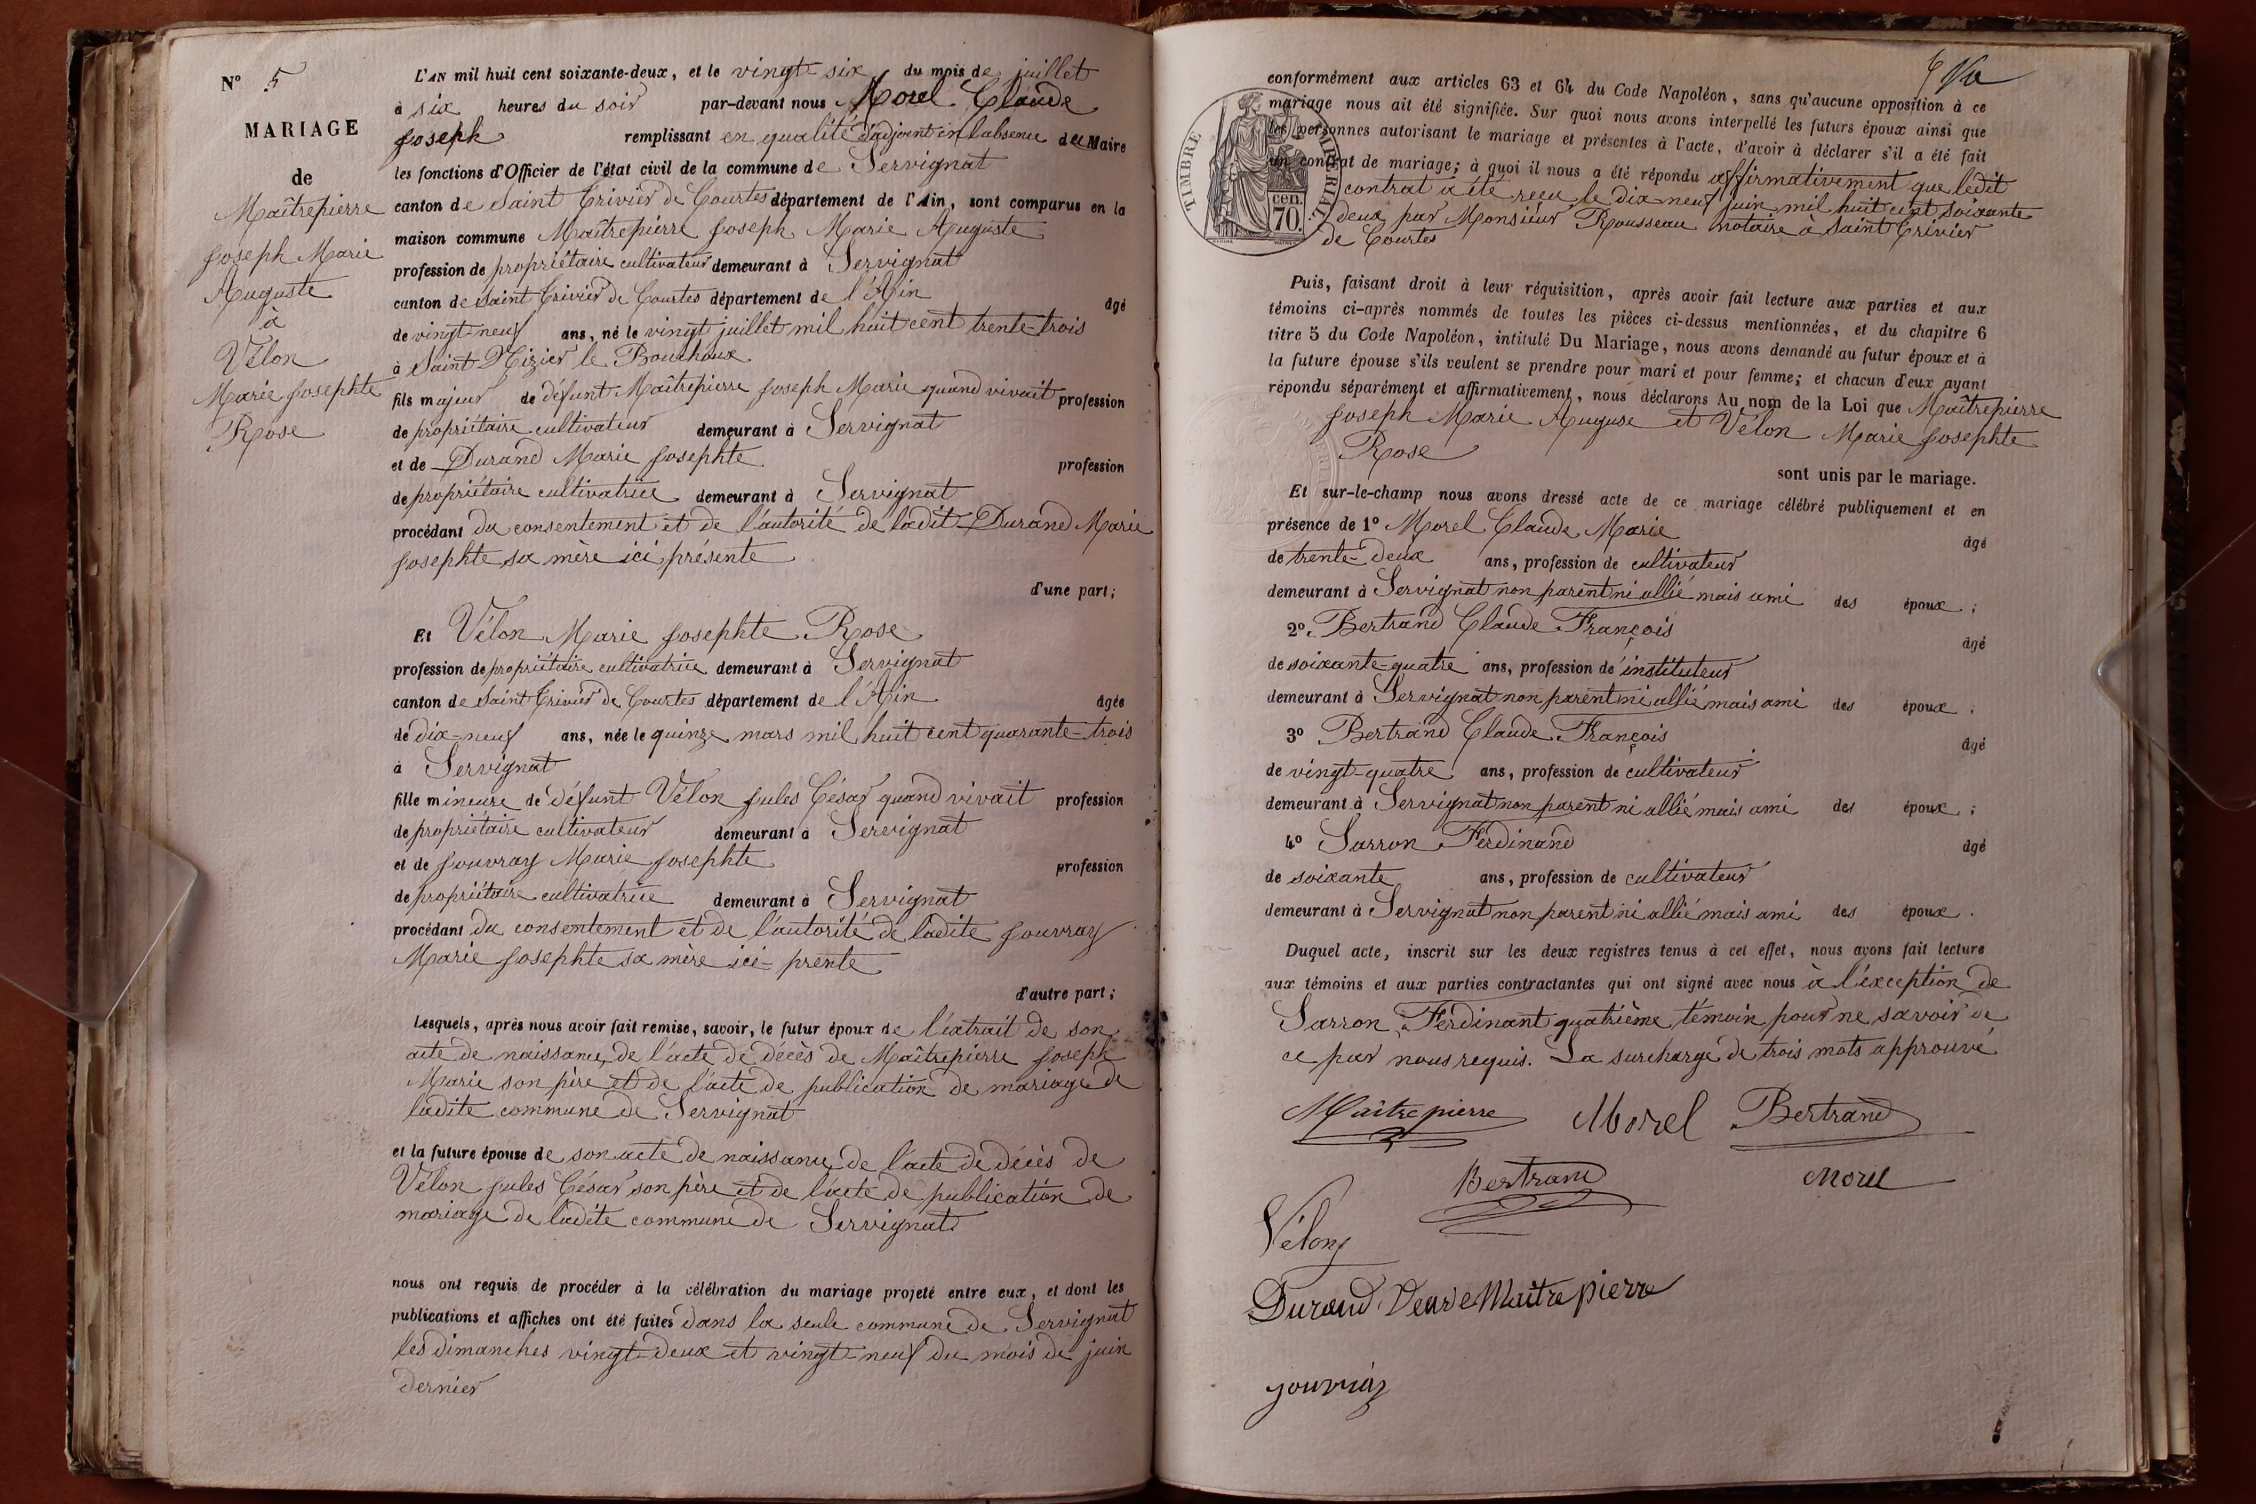 N° 5
MARIAGE
de
Maîtrepierre
Joseph Marie
Auguste
à
Vélon
Marie Josephte
Rose
L'AN mil huit cent soixante-deux, et le vingt six du mois de juillet
à six heures du soir par-devant nous Morel Claude
Joseph remplissant en qualité d'adjoint en l'absence du Maire
les fonctions d'Officier de l'état civil de la commune de Servignat
canton de Saint Trivier de Courtes département de l'Ain, sont comparus en la
maison commune Maîtrepierre Joseph Marie Auguste
profession de propriétaire cultivateur demeurant à Servignat
canton de Saint Trivier de Courtes département de l'Ain âgé
de vingt-neuf ans, né le vingt juillet mil huit cent trente-trois
à Saint Nizier le Bouchoux
fils majeur de défunt Maîtrepierre Joseph Marie quand vivait profession
de propriétaire cultivateur demeurant à Servignat
et de Durand Marie Josephte profession
de propriétaire cultivatrice demeurant à Servignat
procédant du consentement et de l'autorité de ladit Durand Marie
Josephte sa mère ici présente
d'une part;
Et Vélon Marie Josephte Rose
profession de propriétaire cultivatrice demeurant à Servignat
canton de Saint Trivier de Courtes département de l'Ain âgée
de dix-neuf ans, née le quinze mars mil huit cent quarante-trois
à Servignat
fille mineure de défunt Vélon Jules César quand vivait profession
de propriétaire cultivateur demeurant à Servignat
et de Jouvray Marie Josephte profession
de propriétaire cultivatrice demeurant à Servignat
procédant du consentement et de l'autorité de ladite Jouvray
Marie Josephte sa mère ici prente
d'autre part;
Lesquels, après nous avoir fait remise, savoir, le futur époux de l'extrait de son
acte de naissance, de l'acte de décès de Maîtrepierre Joseph
Marie son père et de l'acte de publication de mariage de
ladite commune de Servignat
et la future épouse de son acte de naissance de l'acte de décès de
Vélon Jules César son père et de l'acte de publication de
mariage de ladite commune de Servignat
nous ont requis de procéder à la célébration du mariage projeté entre eux, et dont les
publications et affiches ont été faites dans la seule commune de Servignat
les dimanches vingt-deux et vingt-neuf du mois de juin
dernier
conformément aux articles 63 et 64 du Code Napoléon, sans qu'aucune opposition à ce
mariage nous ait été signifiée. Sur quoi nous avons interpellé les futurs époux ainsi que
les personnes autorisant le mariage et présentes à l'acte, d'avoir à déclarer s'il a été fait
un contrat de mariage; à quoi il nous a été répondu affirmativement que ledit
contrat a été reçu le dix neuf juin mil huit cent soixante
deux par Monsieur Rousseau notaire à Saint Trivier
de Courtes
TIMBRE IMPÉRIAL
70 cen.
Puis, faisant droit à leur réquisition, après avoir fait lecture aux parties et aux
témoins ci-après nommés de toutes les pièces ci-dessus mentionnées, et du chapitre 6
titre 5 du Code Napoléon, intitulé Du Mariage, nous avons demandé au futur époux et à
la future épouse s'ils veulent se prendre pour mari et pour femme; et chacun d'eux ayant
répondu séparément et affirmativement, nous déclarons Au nom de la Loi que Maîtrepierre
Joseph Marie Auguse et Vélon Marie Josephte
Rose
sont unis par le mariage.
Et sur-le-champ nous avons dressé acte de ce mariage célébré publiquement et en
présence de 1° Morel Claude Marie âgé
de trente-deux ans, profession de cultivateur
demeurant à Servignat non parent ni allié mais ami des époux;
2° Bertrand Claude François âgé
de soixante-quatre ans, profession de instituteur
demeurant à Servignat non parent ni allié mais ami des époux.
3° Bertrand Claude François âgé
de vingt-quatre ans, profession de cultivateur
demeurant à Servignat non parent ni allié mais ami des époux;
4° Sarron Ferdinand âgé
de soixante ans, profession de cultivateur
demeurant à Servignat non parent ni allié mais ami des époux.
Duquel acte, inscrit sur les deux registres tenus à cet effet, nous avons fait lecture
aux témoins et aux parties contractantes qui ont signé avec nous à l'exception de
Sarron Ferdinant quatrième témoin pour ne savoir de
ce par nous requis. La surcharge de trois mots approuvé
Maîtrepierre Morel Bertrand
Bertrand Morel
Vélon
Durand Veuve Maitrepierre
jouvray